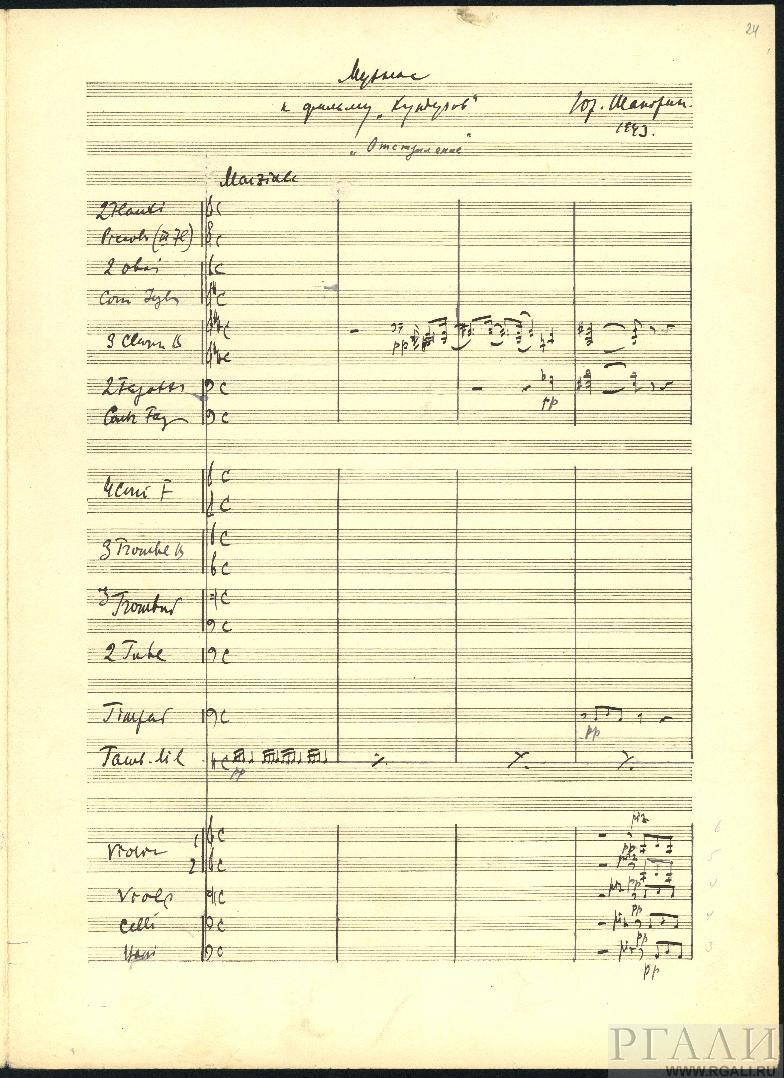 24
Музыка
к фильму „Кутузов“
Юр. Шапорин.
1943.
„Отступление“
Marziale
2 Flauti
Piccolo (III Fl)
2 oboi
Corn Ingl
3 Clarn B
pp
2 Fagotti
pp
Contr Fag
4 Corni F
3 Trombe B
3 Tromboni
2 Tube
Timpani
pp
Tamb. Mil
pp
Violini 1
2
piz
pp
piz
pp
Viole
piz
pp
Celli
piz
pp
piz
pp
6
5
4
4
3
РГАЛИ
WWW.RGALI.RU